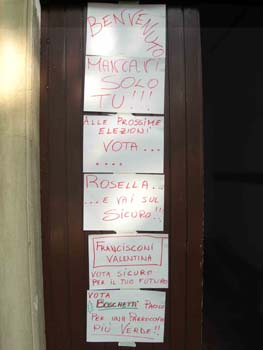 BENVENUTO
MANCAVI
SOLO
TU!!!
ALLE PROSSIME
ELEZIONI
VOTA...
....
ROSELLA...
...E VAI SUL
SICURO!!
FRANCISCONI
VALENTINA
VOTA SICURO
PER IL TUO FUTURO
VOTA
BOSCHETTI PAOLO
PER UNA PARROCCHIA
PIÙ VERDE!!